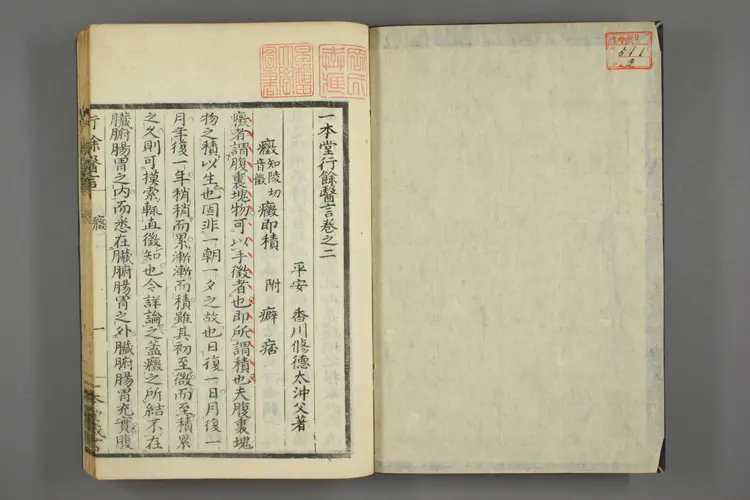 一本堂行餘醫言卷之二
平安　香川修德太沖父著
癥 知陵切 音徵 癥即積　附　癖　痞
癥者謂腹裏塊物可以手徵者也即所謂積也夫腹裏塊
物之積以生也固非一朝一夕之故也日復一日月復一
月年復一年稍稍而累漸漸而積雖其初至微而至積累
之久則可摸索輒直徵知也今詳論之蓋癥之所結不在
臟腑腸胃之内而悉在臟腑腸胃之外臟腑腸胃充實腹
行餘醫言 癥 一
511
2